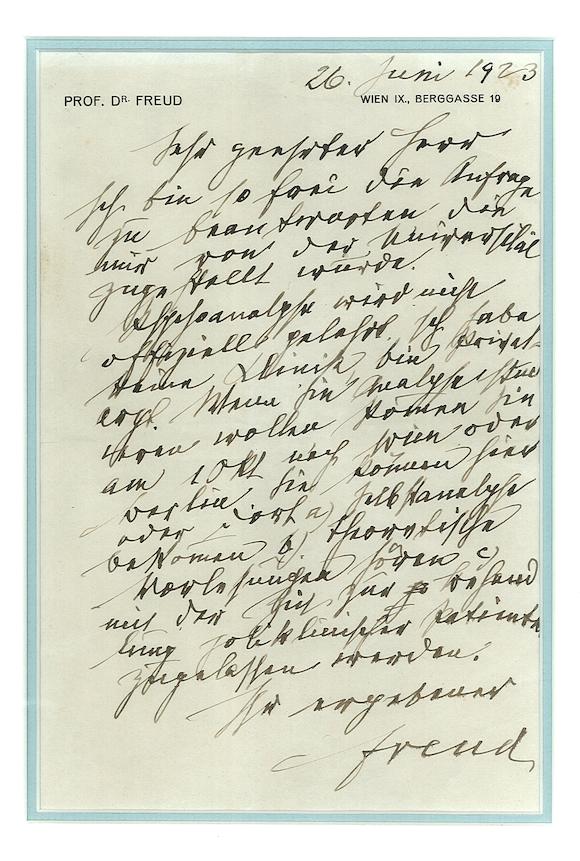 26. Juni 1923
PROF. DR. FREUD WIEN IX., BERGGASSE 19
Sehr geehrter Herr
Ich bin so frei die Anfrage
zu beantworten die
mir von der Universität
zugestellt wurde.
Psychoanalyse wird nicht
offiziell gelehrt. Ich habe
keine Klinik, bin Privat-
arzt. Wenn Sie Analyse
wollen können Sie
am 1 Okt nach Wien oder
Berlin. Sie können hier
oder dort a) Selbstanalyse
bekommen b) theoretische
Vorlesungen hören c)
mit der Zeit zur Behand
lung poliklinischer Patienten
zugelassen werden.
Ihr ergebener
Freud